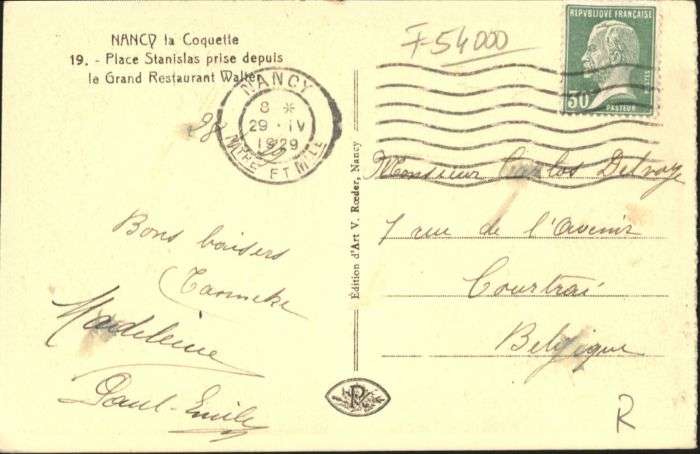 NANCY la Coquette
19. - Place Stanislas prise depuis
le Grand Restaurant Walter
NANCY
8 *
29 - IV
1929
MTHE ET MLLE
F54000
REPUBLIQUE FRANÇAISE
POSTES
50
PASTEUR
28
Bons baisers
Tanneke
Madeleine
Paul-Emile
Édition d'Art V. Rœder, Nancy
R
Monsieur Carlos Delvoye
7 rue de l'Avenir
Courtrai
Belgique
R